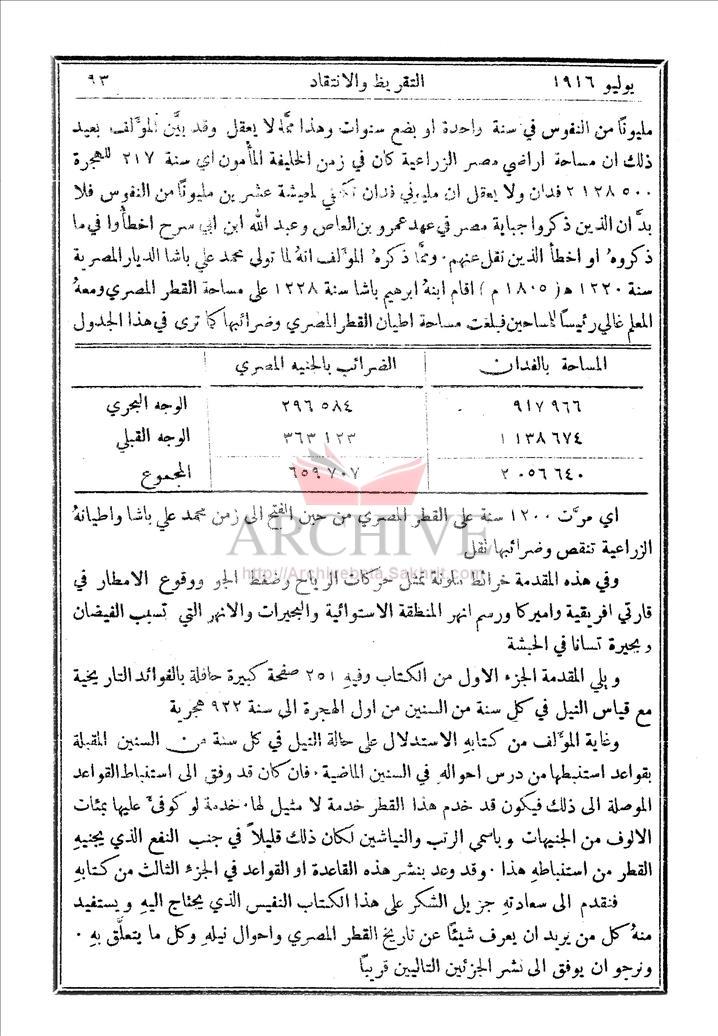 يوليو ١٩١٦ التقريظ والانتقاد ٩٣
مليونًا من النفوس في سنة واحدة او بضع سنوات وهذا ممَّا لا يعقل وقد بيَّن المؤلف بعيد
ذلك ان مساحة اراضي مصر الزراعية كان في زمن الخليفة المأمون اي سنة ٢١٧ للهجرة
٢١٢٨٥٠٠ فدان ولا يعقل ان مليوني فدان تكفي لمعيشة عشرين مليونًا من النفوس فلا
بدَّ ان الذين ذكروا جباية مصر في عهد عمرو بن العاص وعبد الله ابن ابي سرح اخطأوا في ما
ذكروهُ او اخطأ الذين نقل عنهم. وممَّا ذكرهُ المؤلف انهُ لما تولى محمد علي باشا الديار المصرية
سنة ١٢٢٠ ه ( ١٨٠٥ م ) اقام ابنهُ ابرهيم باشا سنة ١٢٢٨ على مساحة القطر المصري ومعهُ
المعلم غالي رئيسًا للمساحين فبلغت مساحة اطيان القطر المصري وضرائبها كما ترى في هذا الجدول
المساحة بالفدان الضرائب بالجنيه المصري
٩١٧٩٦٦ ٢٩٦٥٨٤ الوجه البحري
١١٣٨٦٧٤ ٣٦٣١٢٣ الوجه القبلي
٢٠٥٦٦٤٠ ٦٥٩٧٠٧ المجموع
اي مرَّت ١٢٠٠ سنة على القطر المصري من حين الفتح الى زمن محمد علي باشا واطيانهُ
الزراعية تنقص وضرائبها تقل
ARCHIVE
http://Archivebeta.Sakhrit.com
وفي هذه المقدمة خرائط ملونة تمثل حركات الرياح وضغط الجو ووقوع الامطار في
قارتي افريقية واميركا ورسم انهر المنطقة الاستوائية والبحيرات والانهر التي تسبب الفيضان
وبحيرة تسانا في الحبشة
ويلي المقدمة الجزء الاول من الكتاب وفيهِ ٢٥١ صفحة كبيرة حافلة بالفوائد التاريخية
مع قياس النيل في كل سنة من السنين من اول الهجرة الى سنة ٩٢٢ هجرية
وغاية المؤلف من كتابهِ الاستدلال على حالة النيل في كل سنة من السنين المقبلة
بقواعد استنبطها من درس احواله في السنين الماضية. فان كان قد وفق الى استنباط القواعد
الموصلة الى ذلك فيكون قد خدم هذا القطر خدمة لا مثيل لها. خدمة لو كوفئ عليها بمئات
الالوف من الجنيهات وباسمى الرتب والنياشين لكان ذلك قليلاً في جنب النفع الذي يجنيهِ
القطر من استنباطهِ هذا. وقد وعد بنشر هذه القاعدة او القواعد في الجزء الثالث من كتابهِ
فنقدم الى سعادتهِ جزيل الشكر على هذا الكتاب النفيس الذي يحتاج اليهِ ويستفيد
منهُ كل من يريد ان يعرف شيئًا عن تاريخ القطر المصري واحوال نيلهِ وكل ما يتعلَّق بهِ.
ونرجو ان يوفق الى نشر الجزئين التاليين قريبًا